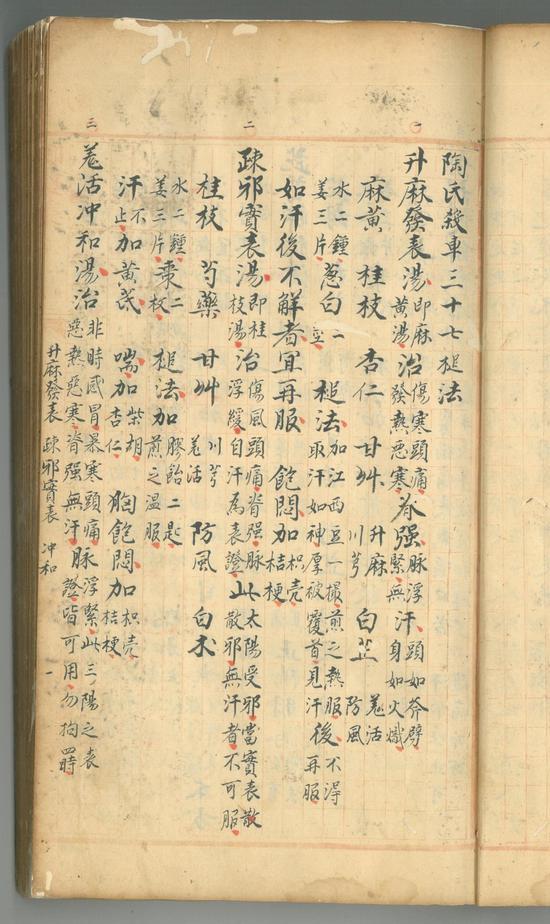 陶氏殺車三十七槌法
一
升麻發表湯 即麻黃湯 治 傷寒頭痛發熱惡寒 脊强 脉浮緊無 汗 頭如斧劈身如火熾
麻黃 桂枝 杏仁 甘艸 升麻川芎 白芷 羌活防風
水二鍾姜三片 葱白 二莖 槌法 加江西豆一撮煎之熱服取汗如神厚被覆首見汗 後 不得再服
如汗後不解者宜再服 飽悶加 枳壳桔梗
二
疎邪實表湯 即桂枝湯 治 傷風頭痛脊强脉浮緩自汗為表證 此 太陽受邪當實表散散邪無汗者不可服
桂枝 芍藥 甘艸 川芎羌活 防風 白术
水二鍾姜三片 棗 二枚 槌法加 膠飴二匙煎之温服
汗 不止 加黃芪 喘加 柴胡杏仁 胸飽悶加 枳壳桔梗
三
羌活冲和湯治 非時感冒暴寒頭痛惡熱惡寒脊强無汗 脉 浮緊此三陽之表證皆可用勿拘四時
升麻發表 疎邪實表 冲和 一